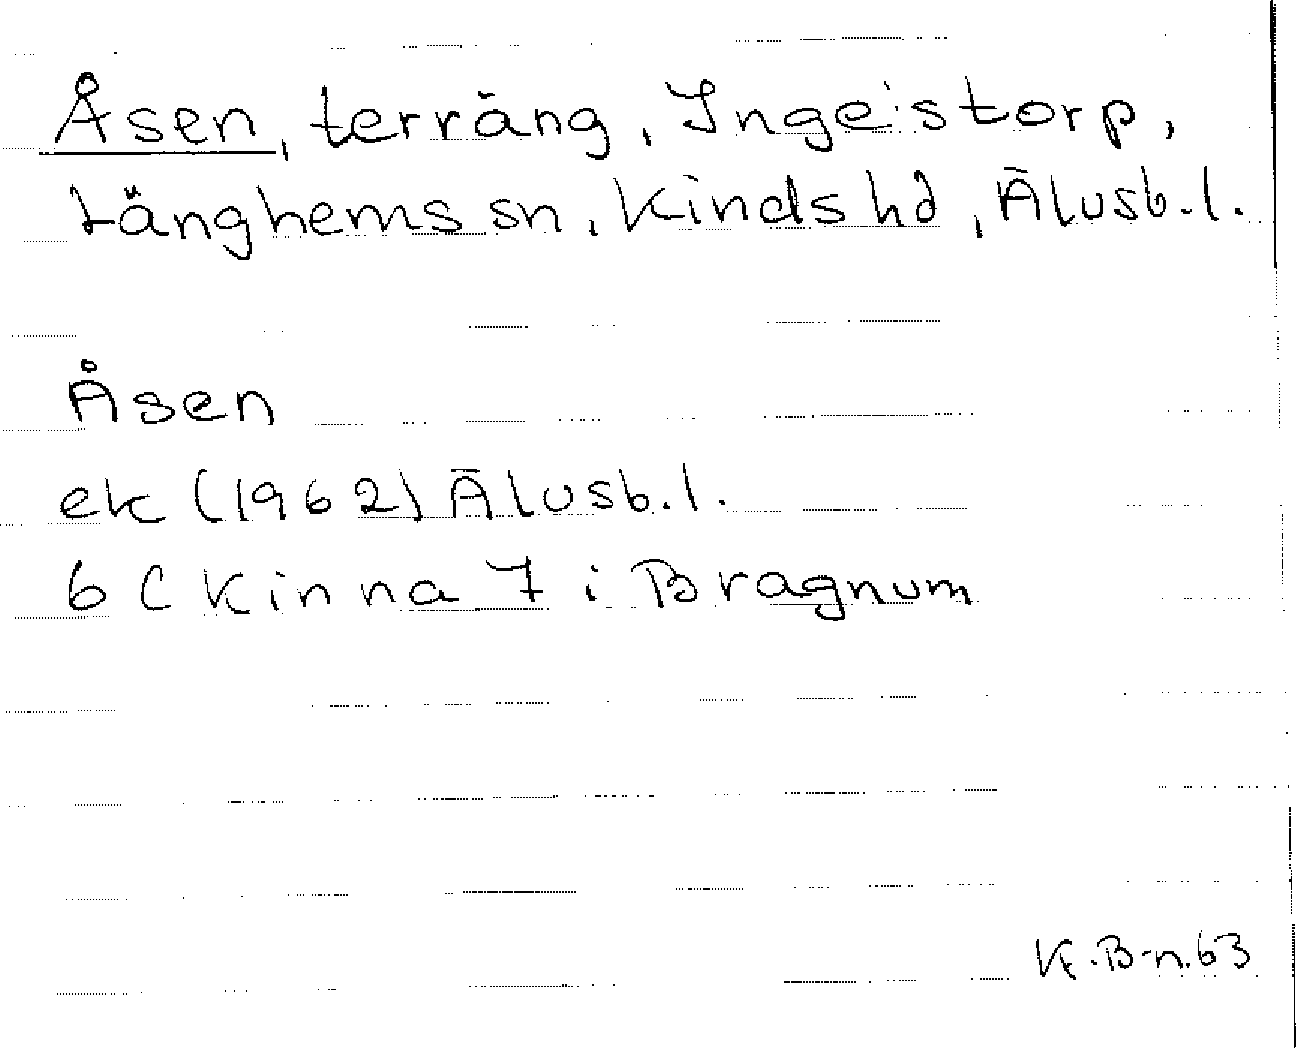 Åsen, terräng, Ingelstorp,
Länghems sn, Kinds hd, Älvsb.l.
Åsen
ek (1962) Älvsb.l.
6 C Kinna 7 i Bragnum
K.B-n.63